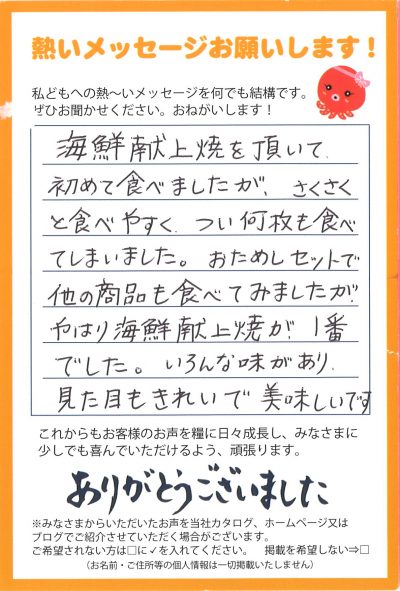 熱いメッセージお願いします!
私どもへの熱〜いメッセージを何でも結構です。
ぜひお聞かせください。おねがいします!
海鮮献上焼を頂いて、
初めて食べましたが、さくさく
と食べやすく、つい何枚も食べ
てしまいました。おためしセットで
他の商品も食べてみましたが
やはり海鮮献上焼が1番
でした。いろんな味があり、
見た目もきれいで美味しいです
これからもお客様のお声を糧に日々成長し、みなさまに
少しでも喜んでいただけるよう、頑張ります。
ありがとうございました
※みなさまからいただいたお声を当社カタログ、ホームページ又は
ブログでご紹介させていただく場合がございます。
ご希望されない方は□に✓を入れてください。 掲載を希望しない⇒□
(お名前・ご住所等の個人情報は一切掲載いたしません)